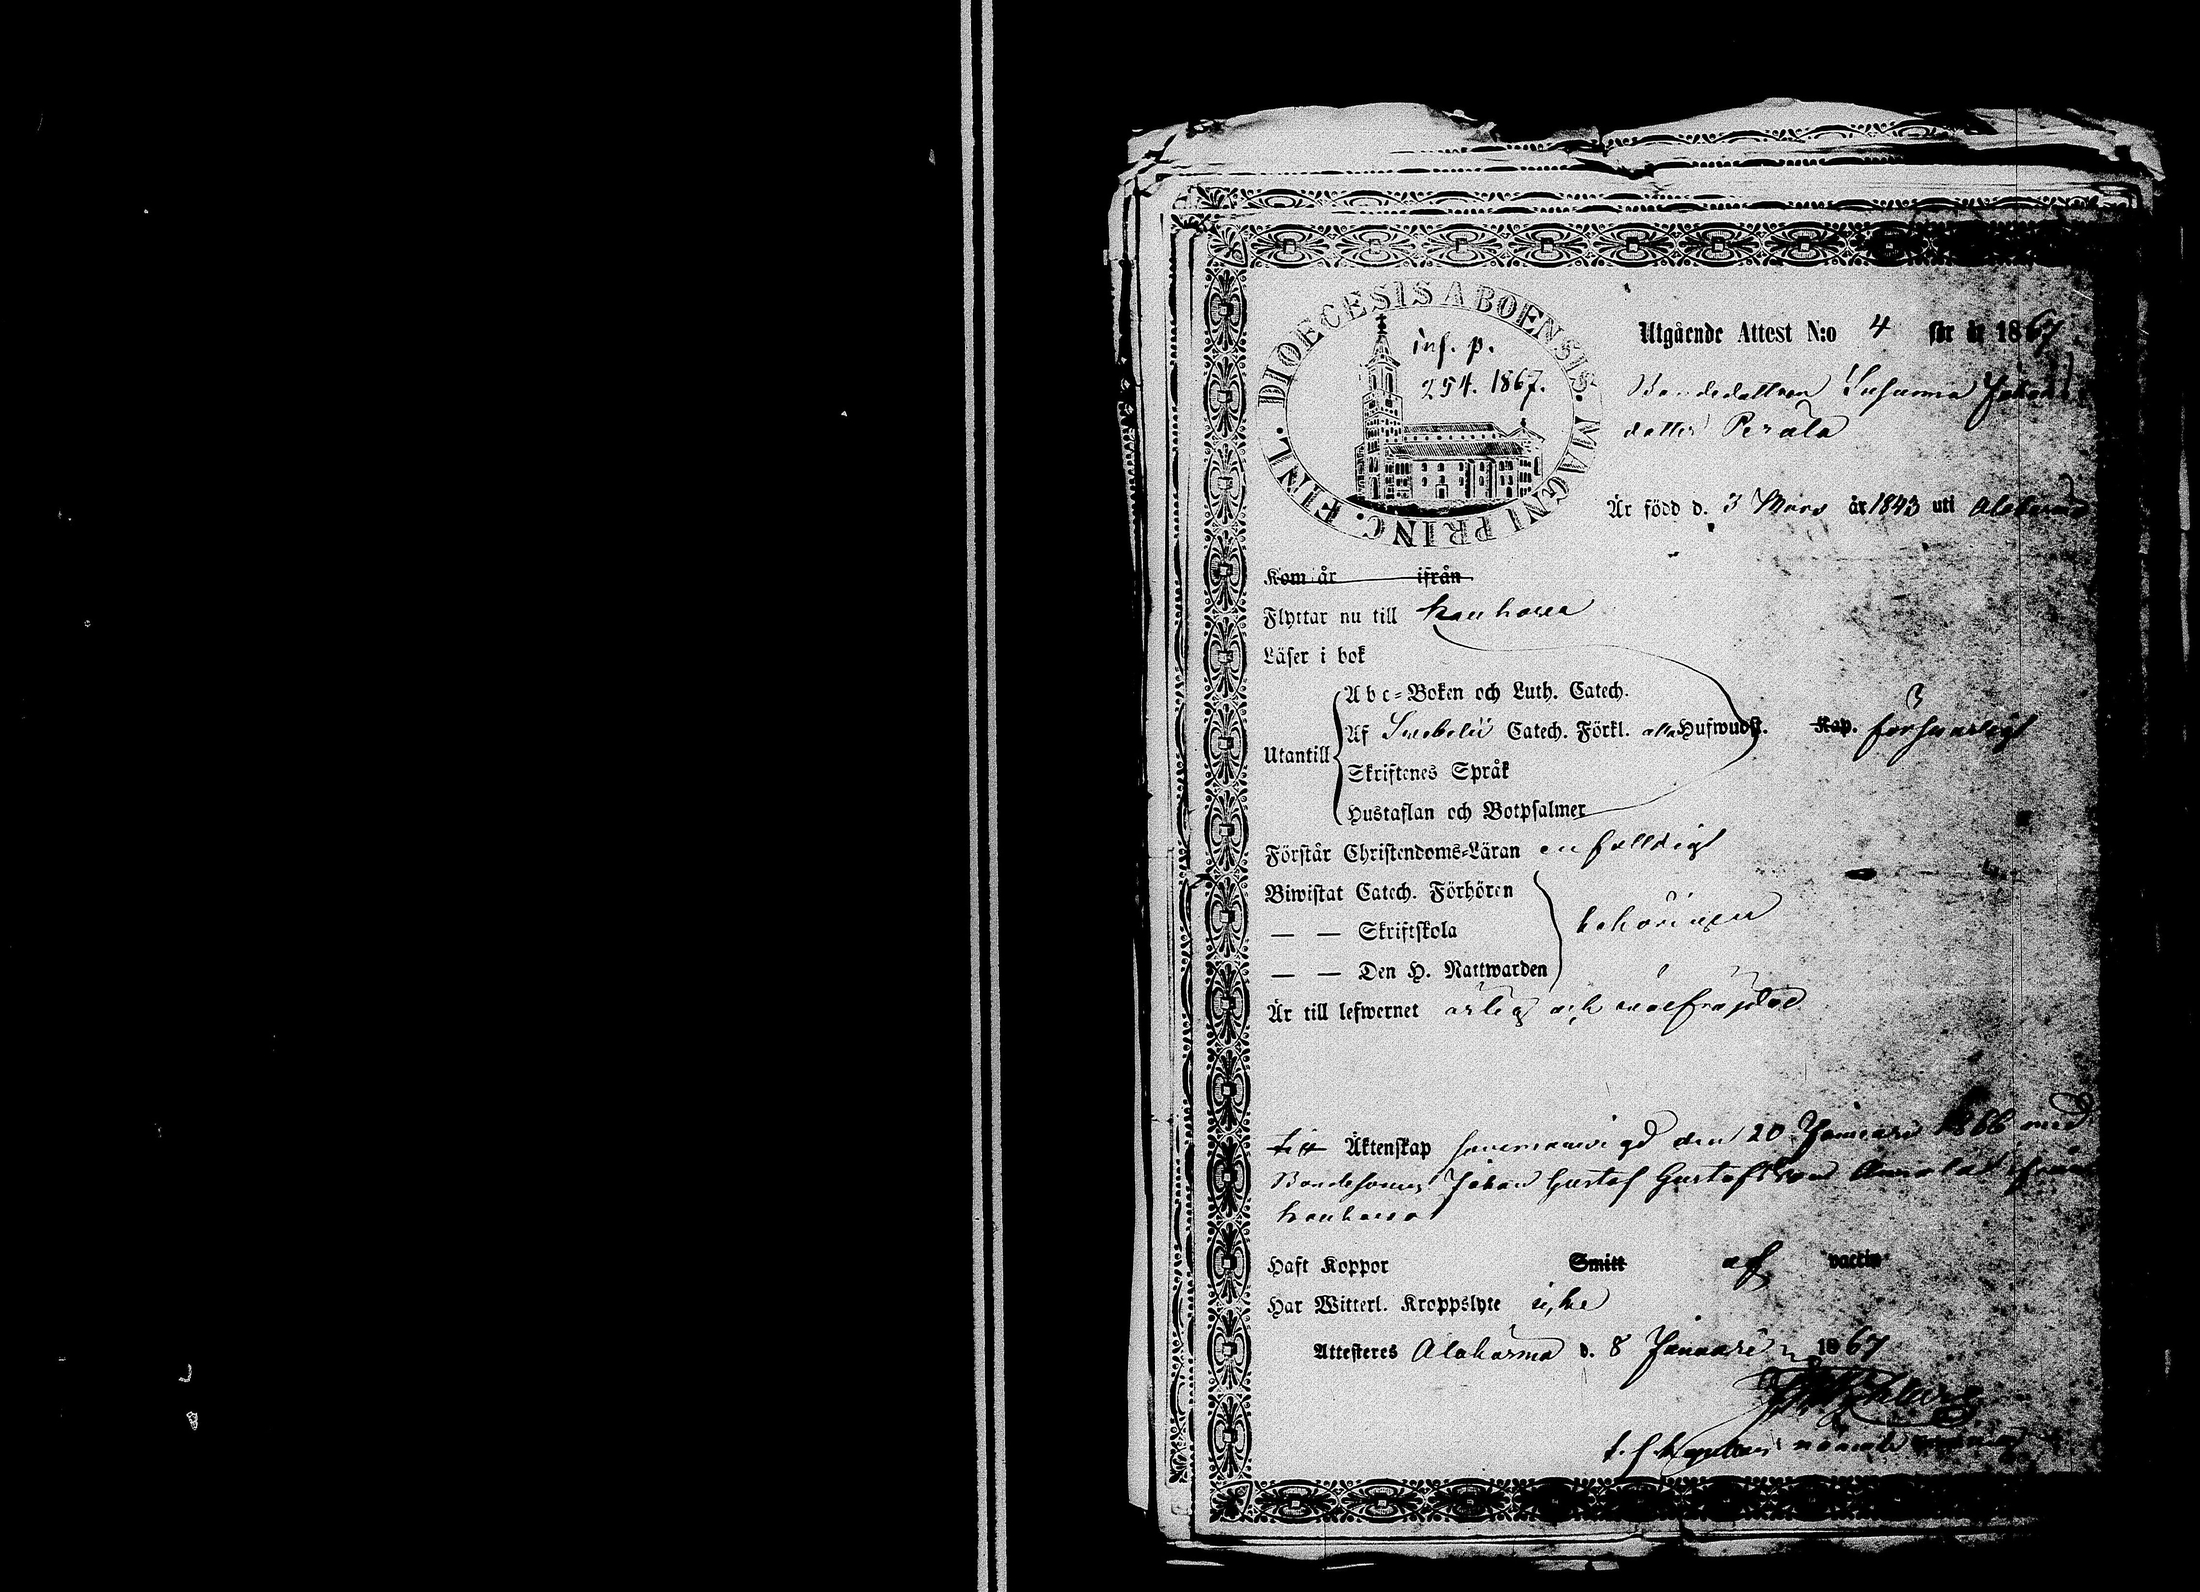 DIOECESIS ABOENSIS. MAGNI PRINC. FINL.
inf. p.
254. 1867.
Utgående Attest N:o 4 för år 1867
Bondedottren Susanna Johans
dotter Perälä
Är född d. 3 Mars år 1843 uti Alahärmä
Kom år ifrån
Flyttar nu till Kauhava
Läser i bok
Abc-Boken och Luth. Catech.
Utantill Af Svebelii Catech. Förkl. alla Hufwudst. Kap. försvarligt
Skriftenes Språk
Hustaflan och Botpsalmer
Förstår Christendoms-Läran enfalldigt
Biwistat Catech. Förhören
— — Skriftskola behörigen
— — Den H. Nattwarden
Är till lefwernet ärlig och välfrejdad
till Äktenskap sammanvigd den 20 Januari 1866 med
Bondesonen Johan Gustaf Gustafsson Annala ifrån
Kauhava
Haft Koppor Smitt af vaccin
Har Witterl. Kroppslyte icke
Attesteras Alahärmä d. 8 Januari 1867
t. f.